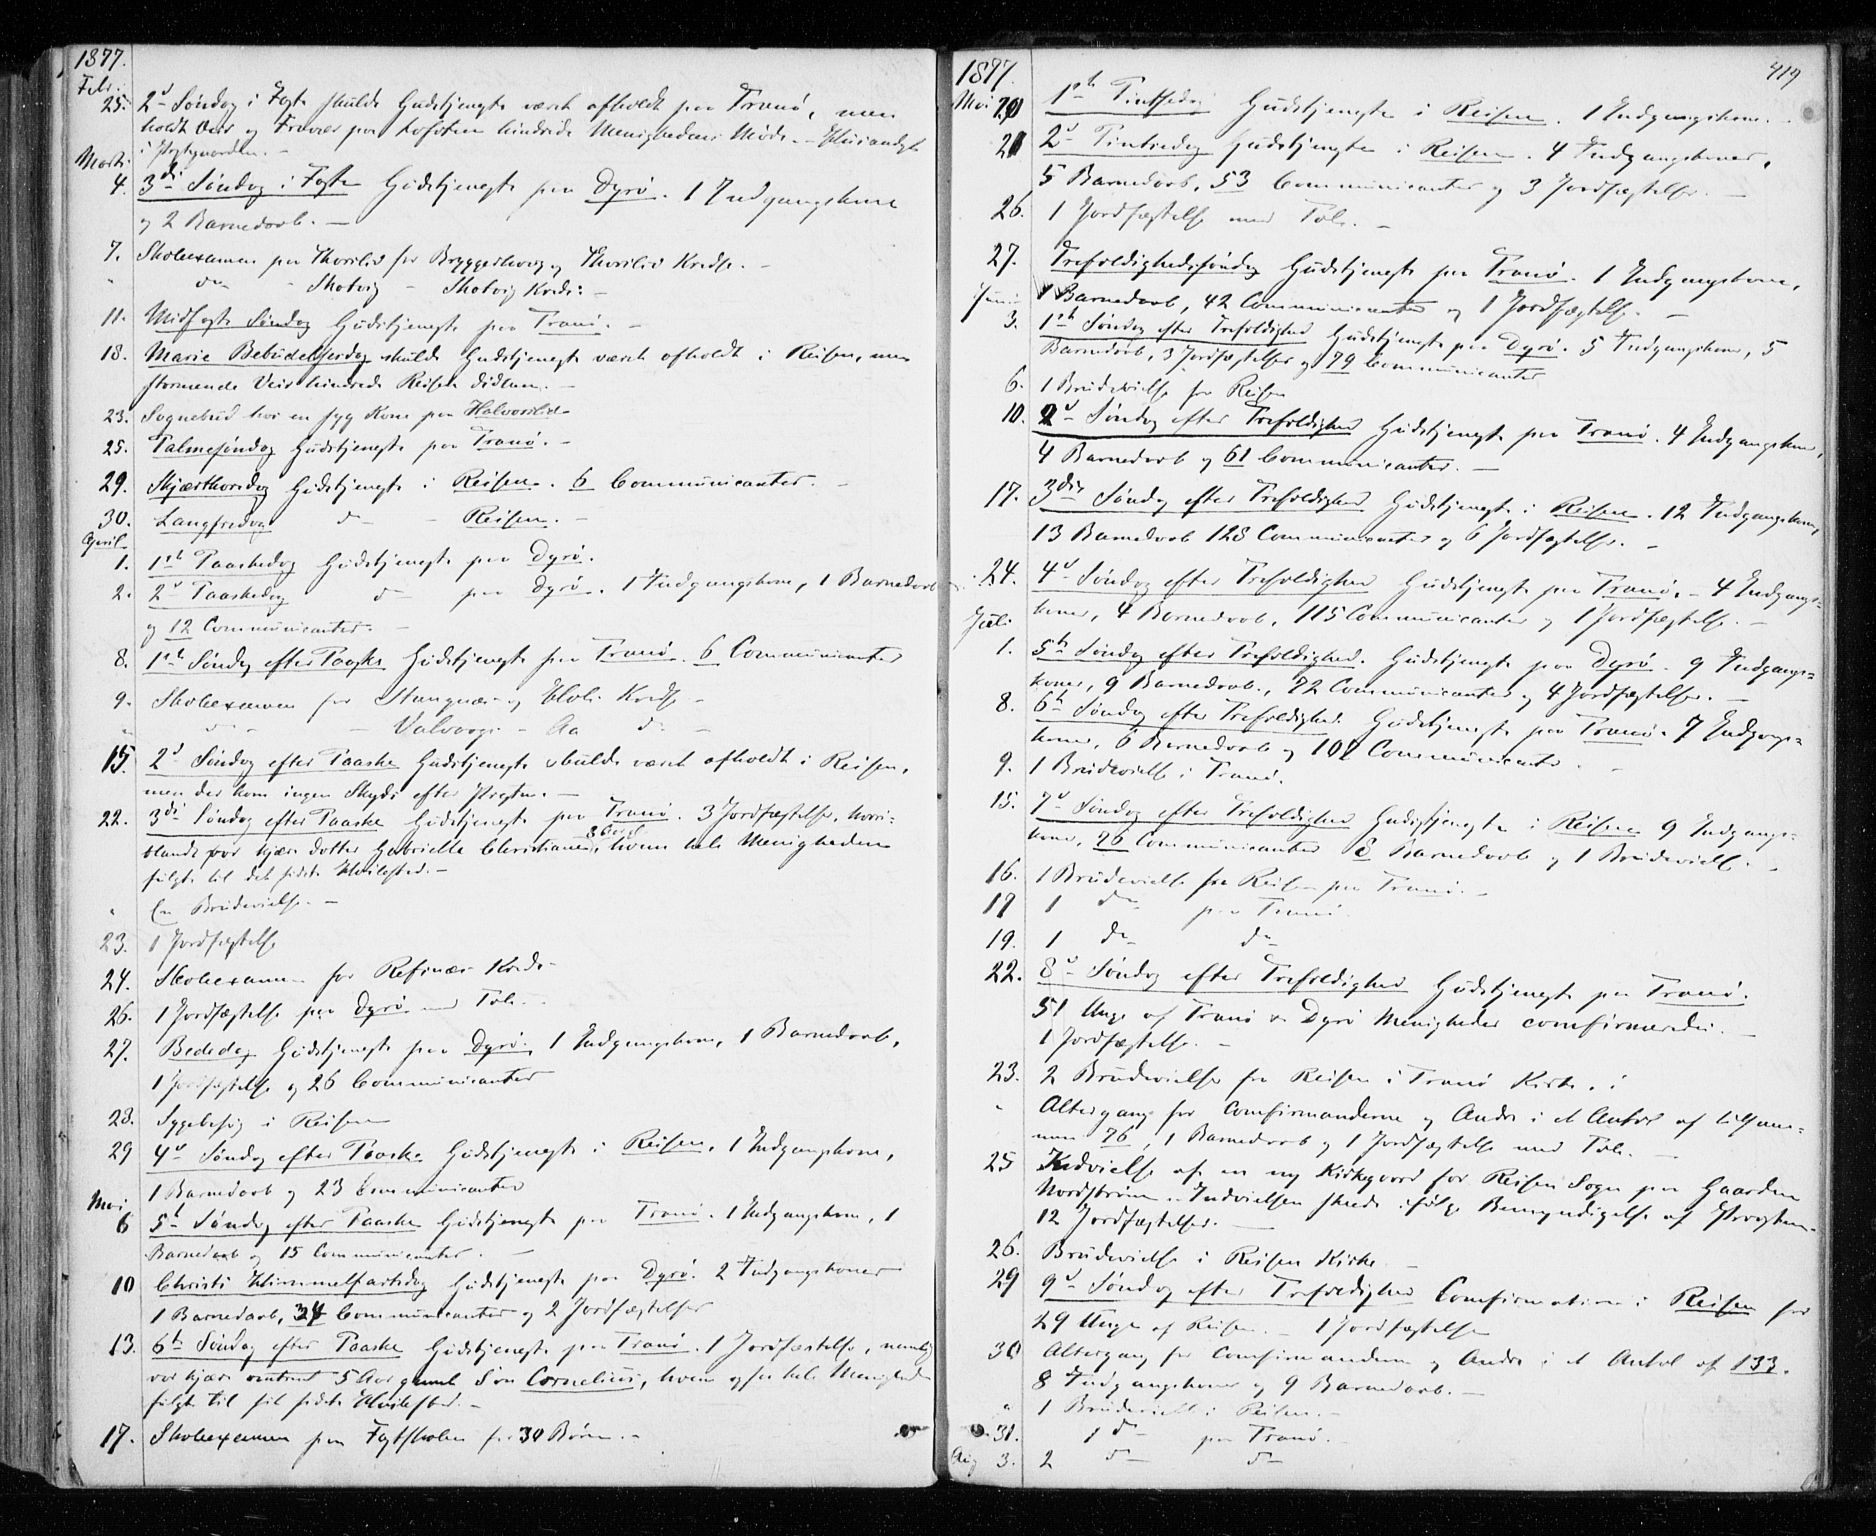 1877.
Febr.
25. 2d Søndag i Faste skulde Gudstjeneste været afholdt paa Tranö, men
holdt Veir og Fravær paa Lofoten hindrede Menighedens Möde. - Husandagt
i Præstegaarden. -
Marts
4. 3di Søndag i Faste Gudstjeneste paa Dyrö. 1 Indgangskone
og 2 Barnedaab. -
7. Skoleexamen paa Thorslid for Bryggerhaug og Thorslid Kredse. -
" do - - Skotvig - Skotvig Kreds: -
11. Midfaste Søndag Gudstjeneste paa Tranö. -
18. Marie Bebudelsesdag skulde Gudstjeneste været afholdt i Reisen, men
stormende Veir hindrede Reisen didhen. -
23. Sognebud hos en syg Kone paa
25. Palmesøndag Gudstjeneste paa Tranö. -
29. Skjærthorsdag Gudstjeneste i Reisen. 6 Communicanter. -
30. Langfredag do - Reisen. -
April
1. 1ste Paaskedag Gudstjeneste paa Dyrö.
2. 2d Paaskedag do paa Dyrö. 1 Indgangskone, 1 Barnedaab
og 12 Communicanter. -
8. 1ste Søndag efter Paaske Gudstjeneste paa Tranö. 6 Communicanter
9. Skoleexamen for Stangnæs og Kredse -
" do - - - Aa do -
15. 2d Søndag efter Paaske Gudstjeneste skulde været afholdt i Reisen,
men der kom ingen Skyds efter Presten. -
22. 3di Søndag efter Paaske Gudstjeneste paa Tranö. 3 Jordfæstelser, hvori-
blandt vor kjære dotter Gabrielle Christiane, hvem hele Menigheden
fulgte til det sidste Hvilested. -
" En Brudevielse. -
23. 1 Jordfæstelse
24. Skoleexamen for Refsnæs Kreds -
26. 1 Jordfæstelse paa Dyrö med Tale. -
27. Bededag Gudstjeneste paa Dyrö. 1 Indgangskone, 1 Barnedaab,
1 Jordfæstelse og 26 Communicanter
28. Sygebesøg i Reisen
29 4d Søndag efter Paaske Gudstjeneste i Reisen. 1 Indgangskone,
1 Barnedaab og 23 Communicanter
Mai
6 5te Søndag efter Paaske Gudstjeneste paa Tranö. 1 Indgangskone, 1
Barnedaab og 15 Communicanter. -
10 Christi Himmelfartsdag Gudstjeneste paa Dyrö. 2 Indgangskoner
1 Barnedaab, 34 Communicanter og 2 Jordfæstelser
13. 6te Søndag efter Paaske Gudstjeneste paa Tranö. 1 Jordfæstelse, nemlig
vor kjære omtrent 5 Aar gamle Søn Cornelius, hvem ogsaa hele Menigheden
fulgte til sit sidste Hvilested. -
17. Skoleexamen paa Fastskolen for 30 Børn. -
1877. 419
Mai 20 1ste Pintsedag Gudstjeneste i Reisen. 1 Indgangskone. -
21 2d Pintsedag Gudstjeneste i Reisen. 4 Indgangskoner,
5 Barnedaab, 53 Communicanter og 3 Jordfæstelser. -
26. 1 Jordfæstelse med Tale. -
27. Trefoldighedssøndag Gudstjeneste paa Tranö. 1 Indgangskone,
1 Barnedaab, 42 Communicanter og 1 Jordfæstelse. -
Juni
3. 1ste Søndag efter Trefoldighed Gudstjeneste paa Dyrö. 5 Indgangskone, 5
Barnedaab, 3 Jordfæstelser og 79 Communicanter
6. 1 Brudevielse fra Reisen
10. 2d Søndag efter Trefoldighed Gudstjeneste paa Tranö. 4 Indgangskone,
4 Barnedaab og 61 Communicanter. -
17. 3die Søndag efter Trefoldighed Gudstjeneste i Reisen. 12 Indgangskone,
13 Barnedaab 128 Communicanter og 6 Jordfæstelser. -
24. 4d Søndag efter Trefoldighed Gudstjeneste paa Tranö. - 4 Indgangs=
koner, 4 Barnedaab, 115 Communicanter og 1 Jordfæstelse. -
Juli
1. 5te Søndag efter Trefoldighed. Gudstjeneste paa Dyrö. 9 Indgangs=
koner, 9 Barnedaab., 72 Communicanter og 4 Jordfæstelser. -
8. 6te Søndag efter Trefoldighed Gudstjeneste paa Tranö. 7 Indgangs=
koner, 6 Barnedaab og 101 Communicanter. -
9. 1 Brudevielse i Tranö.
15. 7d Søndag efter Trefoldighed Gudstjeneste i Reisen 9 Indgangs=
koner, 76 Communicanter 8 Barnedaab og 1 Brudevielse. -
16. 1 Brudevielse fra Reisen paa Tranö. -
17 1 do paa Tranö
19. 1 do do
22. 8d Søndag efter Trefoldighed Gudstjeneste paa Tranö.
51 Unge af Tranö og Dyrö Menigheder comfirmerede. -
1 Jordfæstelse. -
23. 2 Brudevielser fra Reisen i Tranö Kirke.
" Altergang for Comfirmanderne og Andre i et Antal af tilsam=
men 76, 1 Barnedaab og 1 Jordfæstelse med Tale. -
25 Indvielse af en ny Kirkegaard for Reisen Sogn paa Gaarden
Nordstrøm. - Indvielsen skede ifølge Bemyndigelse af Provsten.
12 Jordfæstelser. -
26. Brudevielse i Reisen Kirke. -
29 9d Søndag efter Trefoldighed Comfirmation i Reisen for
29 Unge af Reisen. - 1 Jordfæstelse
30 Altergang for Comfirmanderne og Andre i et Antal af 133.
8 Indgangskoner og 9 Barnedaab. -
" 1 Brudevielse i Reisen. -
31. 1 do paa Tranö. -
Aug 3. 2 do do